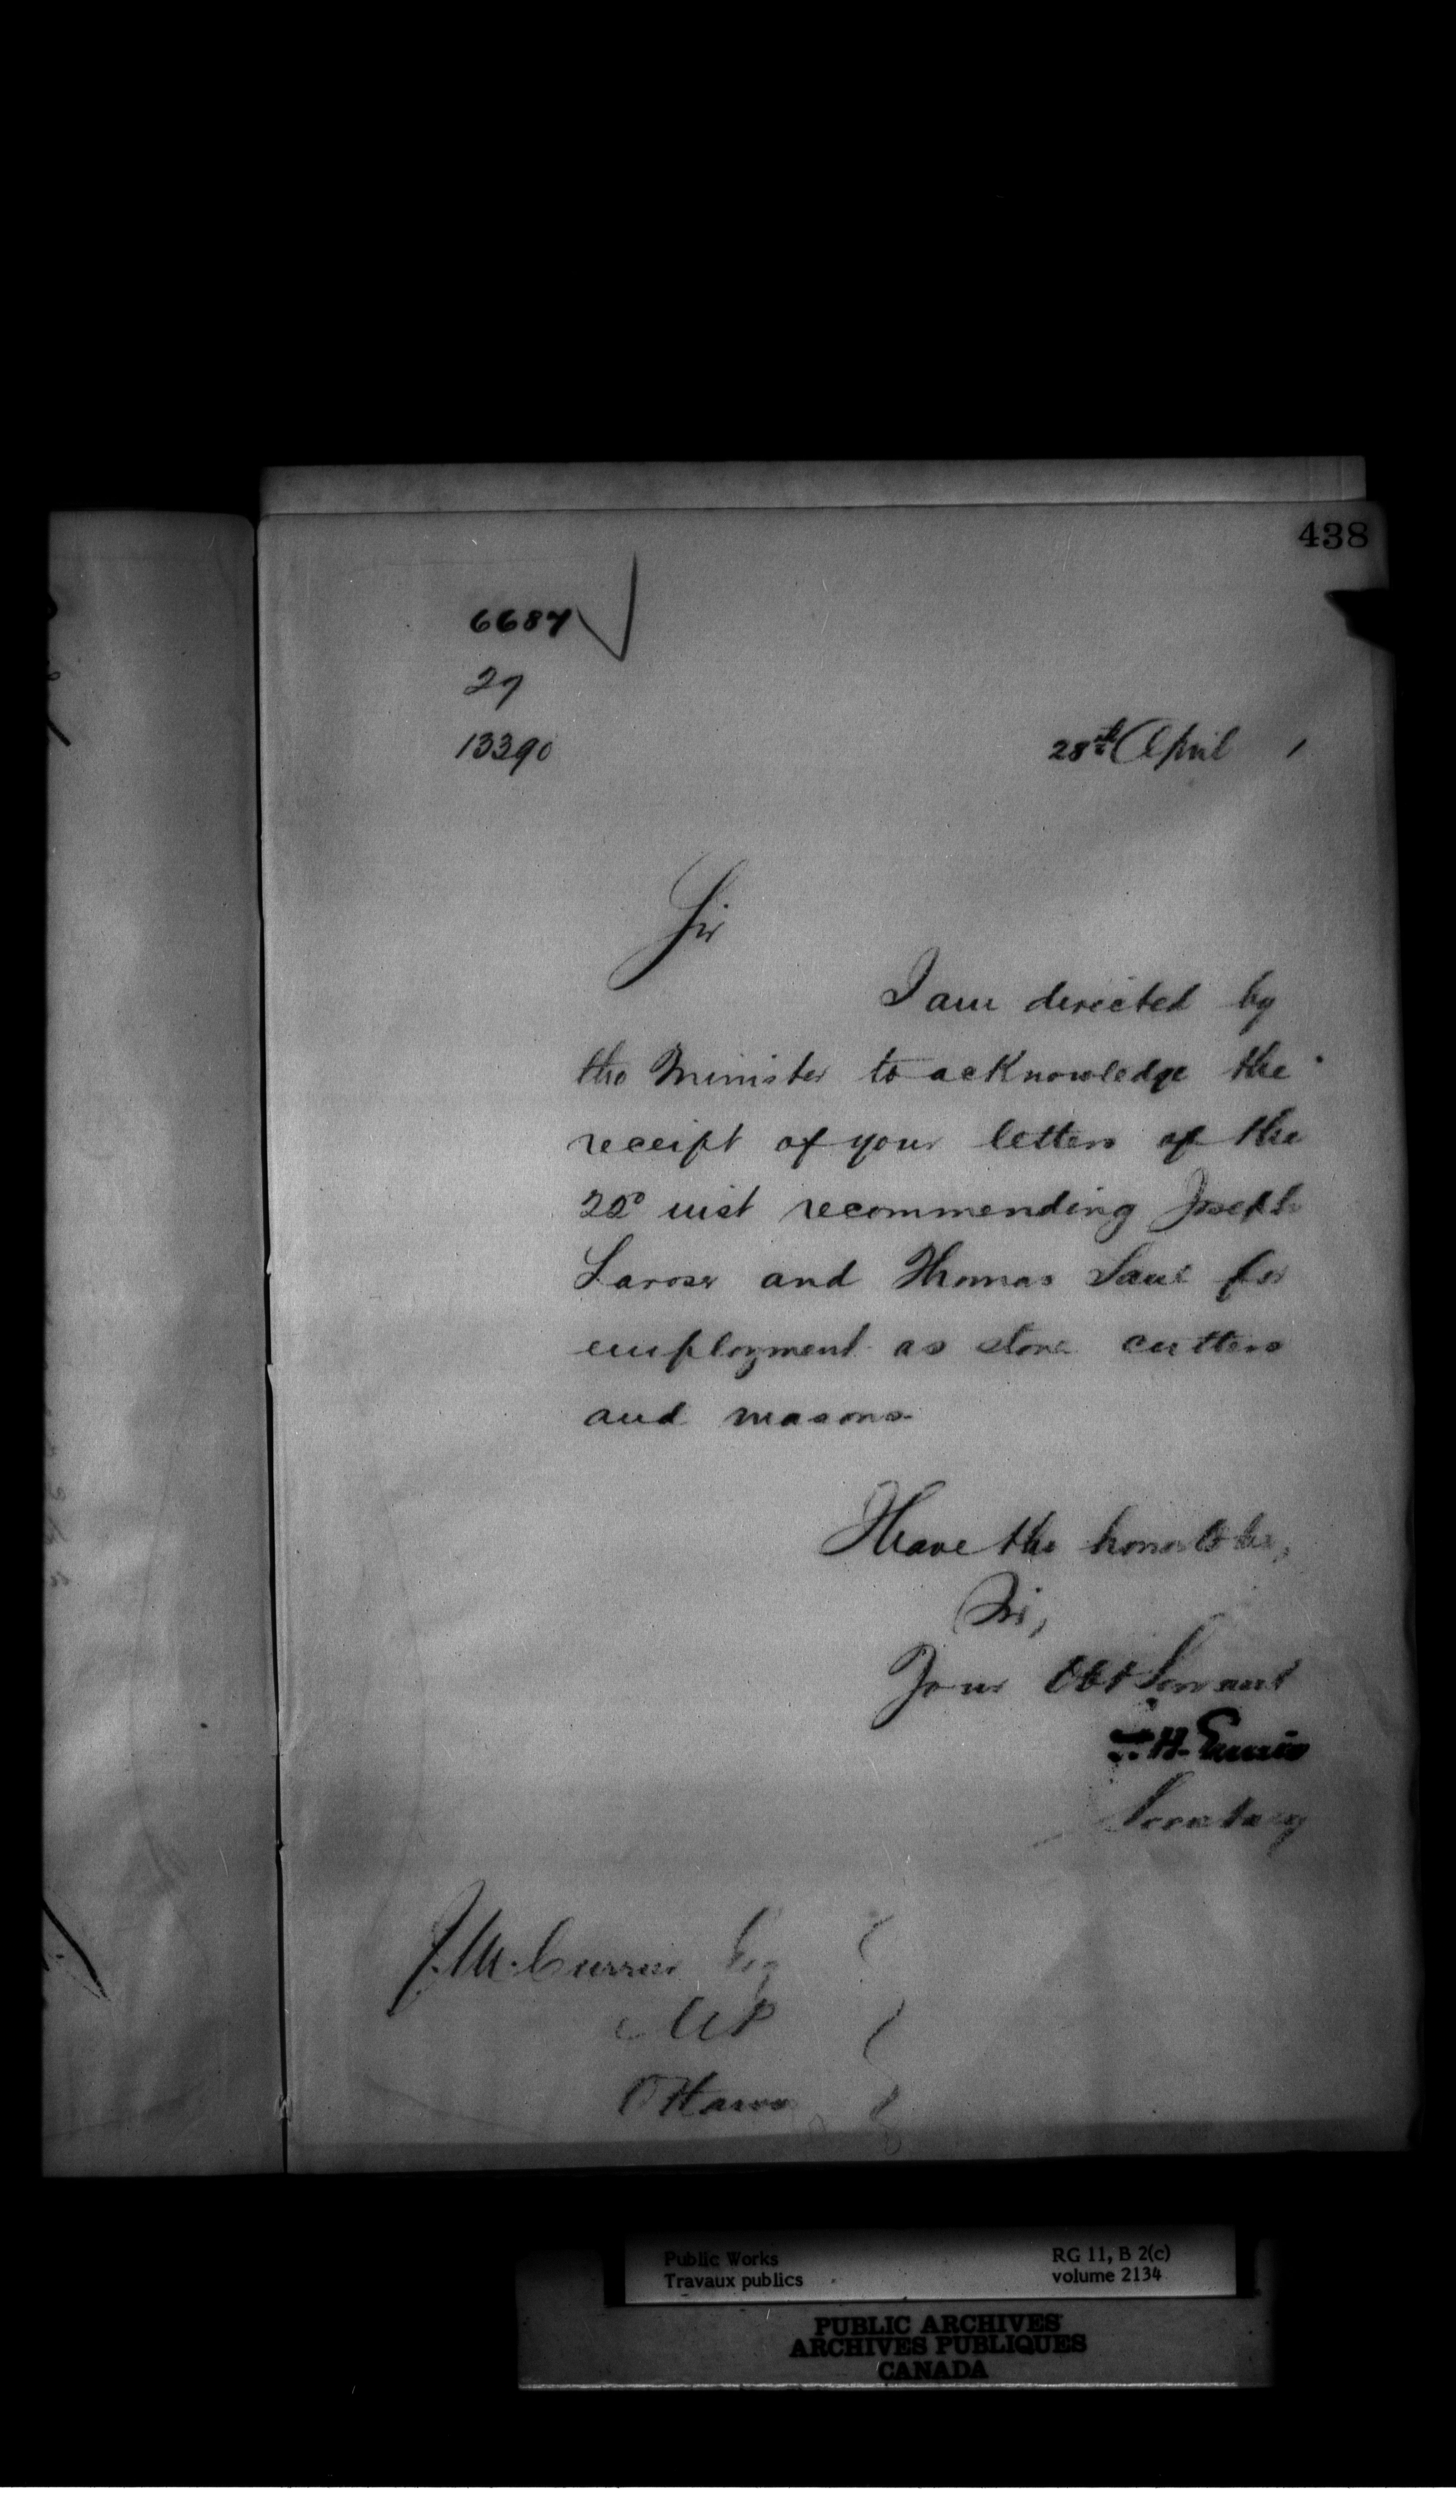 438
6687
27
13390
28th April 1
Sir
I am directed by
the Minister to acknowledge the
receipt of your letters of the
22° inst recommending Joseph
Larose and Thomas Saul for
employment as stone cutters
and masons.
Have the honor to be,
Sir,
Your Obt Servant
F. H. Ennis
Secretary
J. M. Currier Esq
MP
Ottawa
Public Works
Travaux publics
RG 11, B 2(c)
volume 2134
PUBLIC ARCHIVES
ARCHIVES PUBLIQUES
CANADA